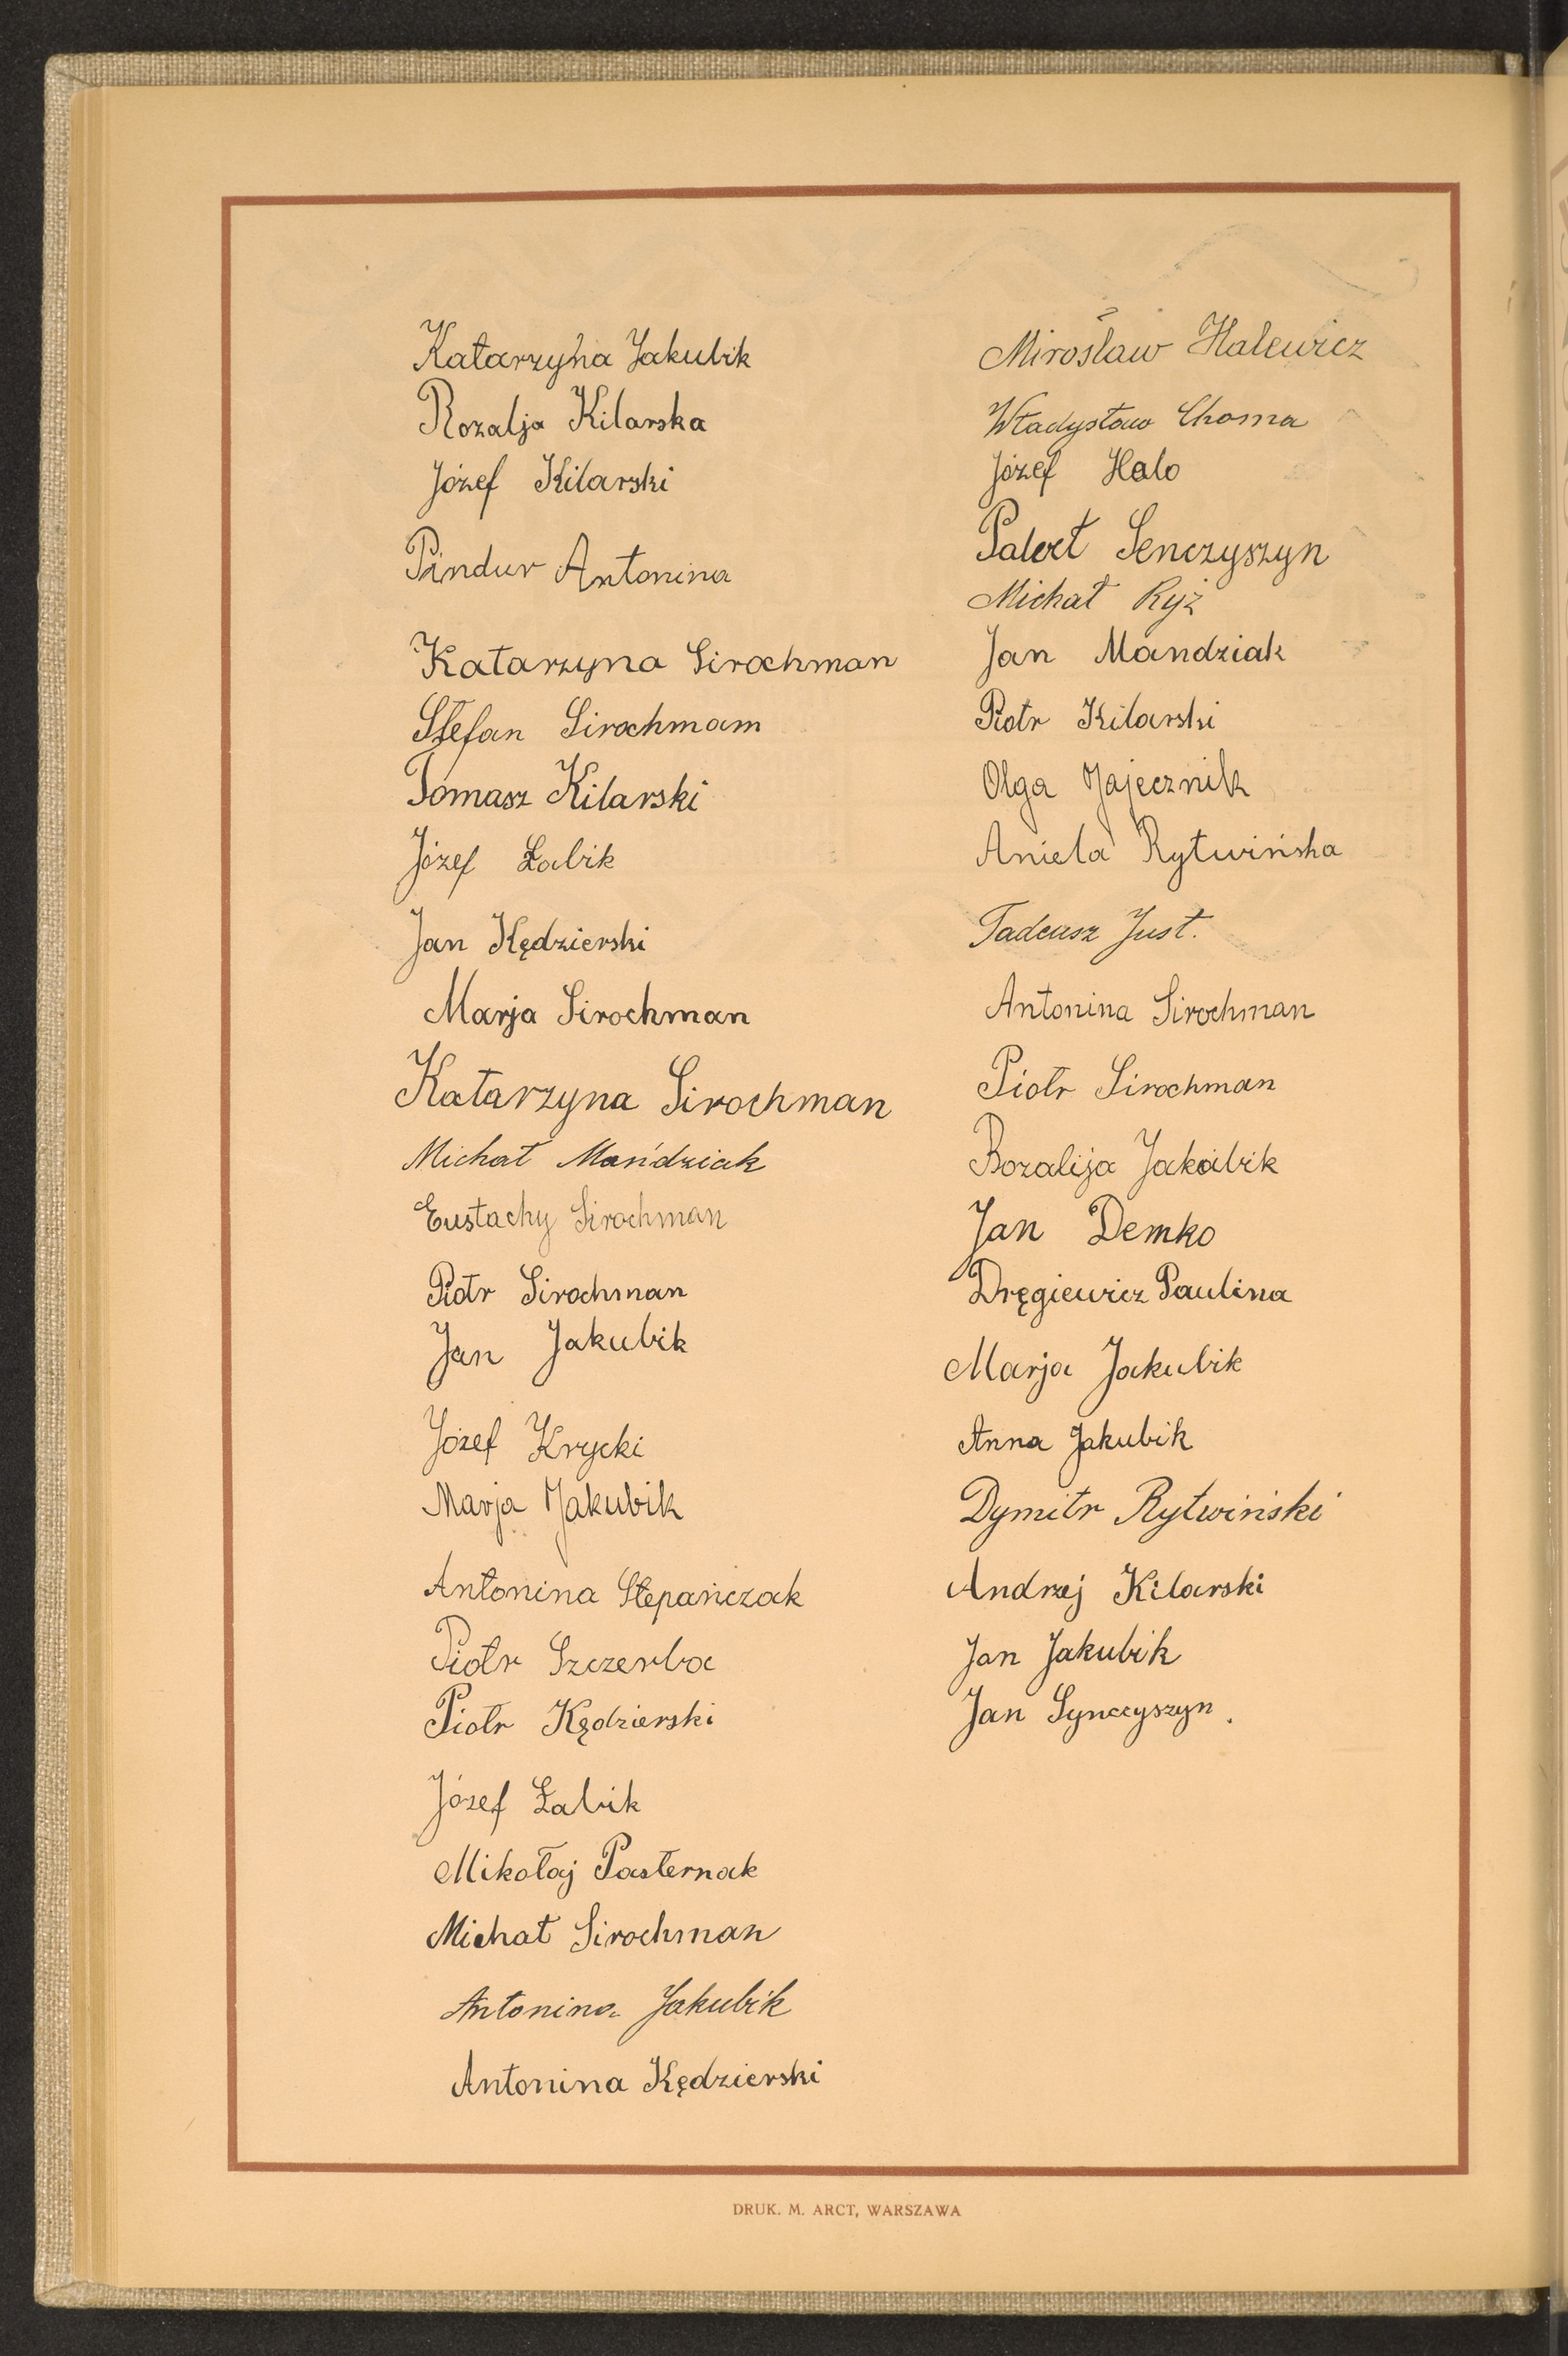 Katarzyna Jakubik
Rozalja Kilarska
Józef Kilarski
Pindur Antonina
Katarzyna Sirochman
Stefan Sirochmam
Tomasz Kilarski
Józef Łabik
Jan Kędzierski
Marja Sirochman
Katarzyna Sirochman
Michał Mańdziak
Eustachy Sirochman
Piotr Sirochman
Jan Jakubik
Józef Krycki
Marja Jakubik
Antonina Stepańczak
Piotr Szczerba
Piotr Kędzierski
Józef Łabik
Mikołaj Pasternak
Michał Sirochman
Antonina Jakubik
Antonina Kędzierski
Mirosław Halewicz
Władysław Choma
Józef Halo
Senczyszyn
Michał Ryż
Jan Mandziak
Piotr Kilarski
Olga Jajecznik
Aniela Rytwińska
Tadeusz Just.
Antonina Sirochman
Piotr Sirochman
Rozalija
Jan Demko
Dręgiewicz Paulina
Marja Jakubik
Anna Jakubik
Dymitr Rytwiński
Andrzej Kilarski
Jan Jakubik
Jan Synczyszyn.
DRUK. M. ARCT, WARSZAWA